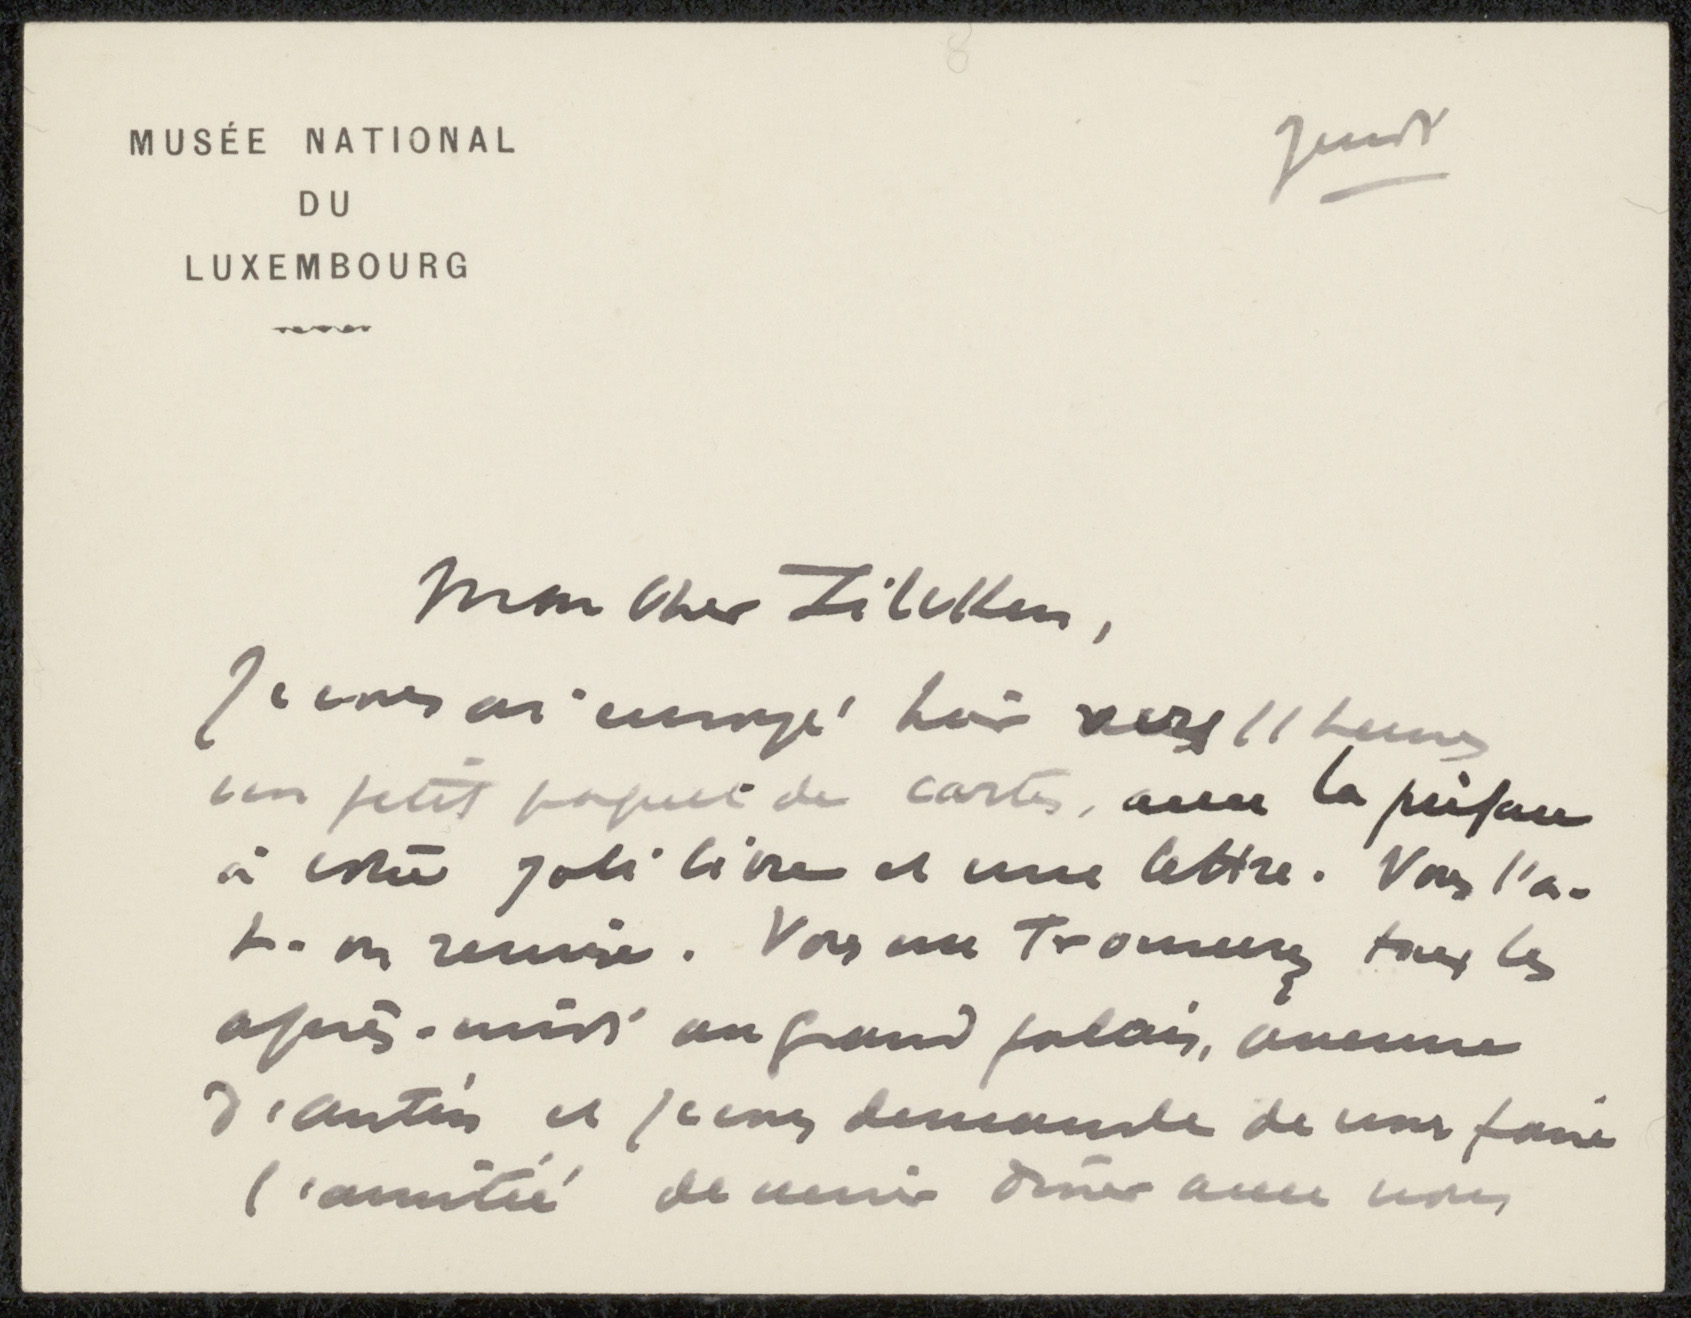 MUSÉE NATIONAL
DU
LUXEMBOURG
Jeudi
Mon cher Zilcken,
Je vous ai envoyé hier vers 11 heures
un petit paquet de cartes, avec la préface
à votre joli livre et une lettre. Vous l'a-
t-on remise. Vous me trouverez tous les
après-midi au grand palais, avenue
d'antin et je vous demande de nous faire
l'amitié de venir dîner avec nous